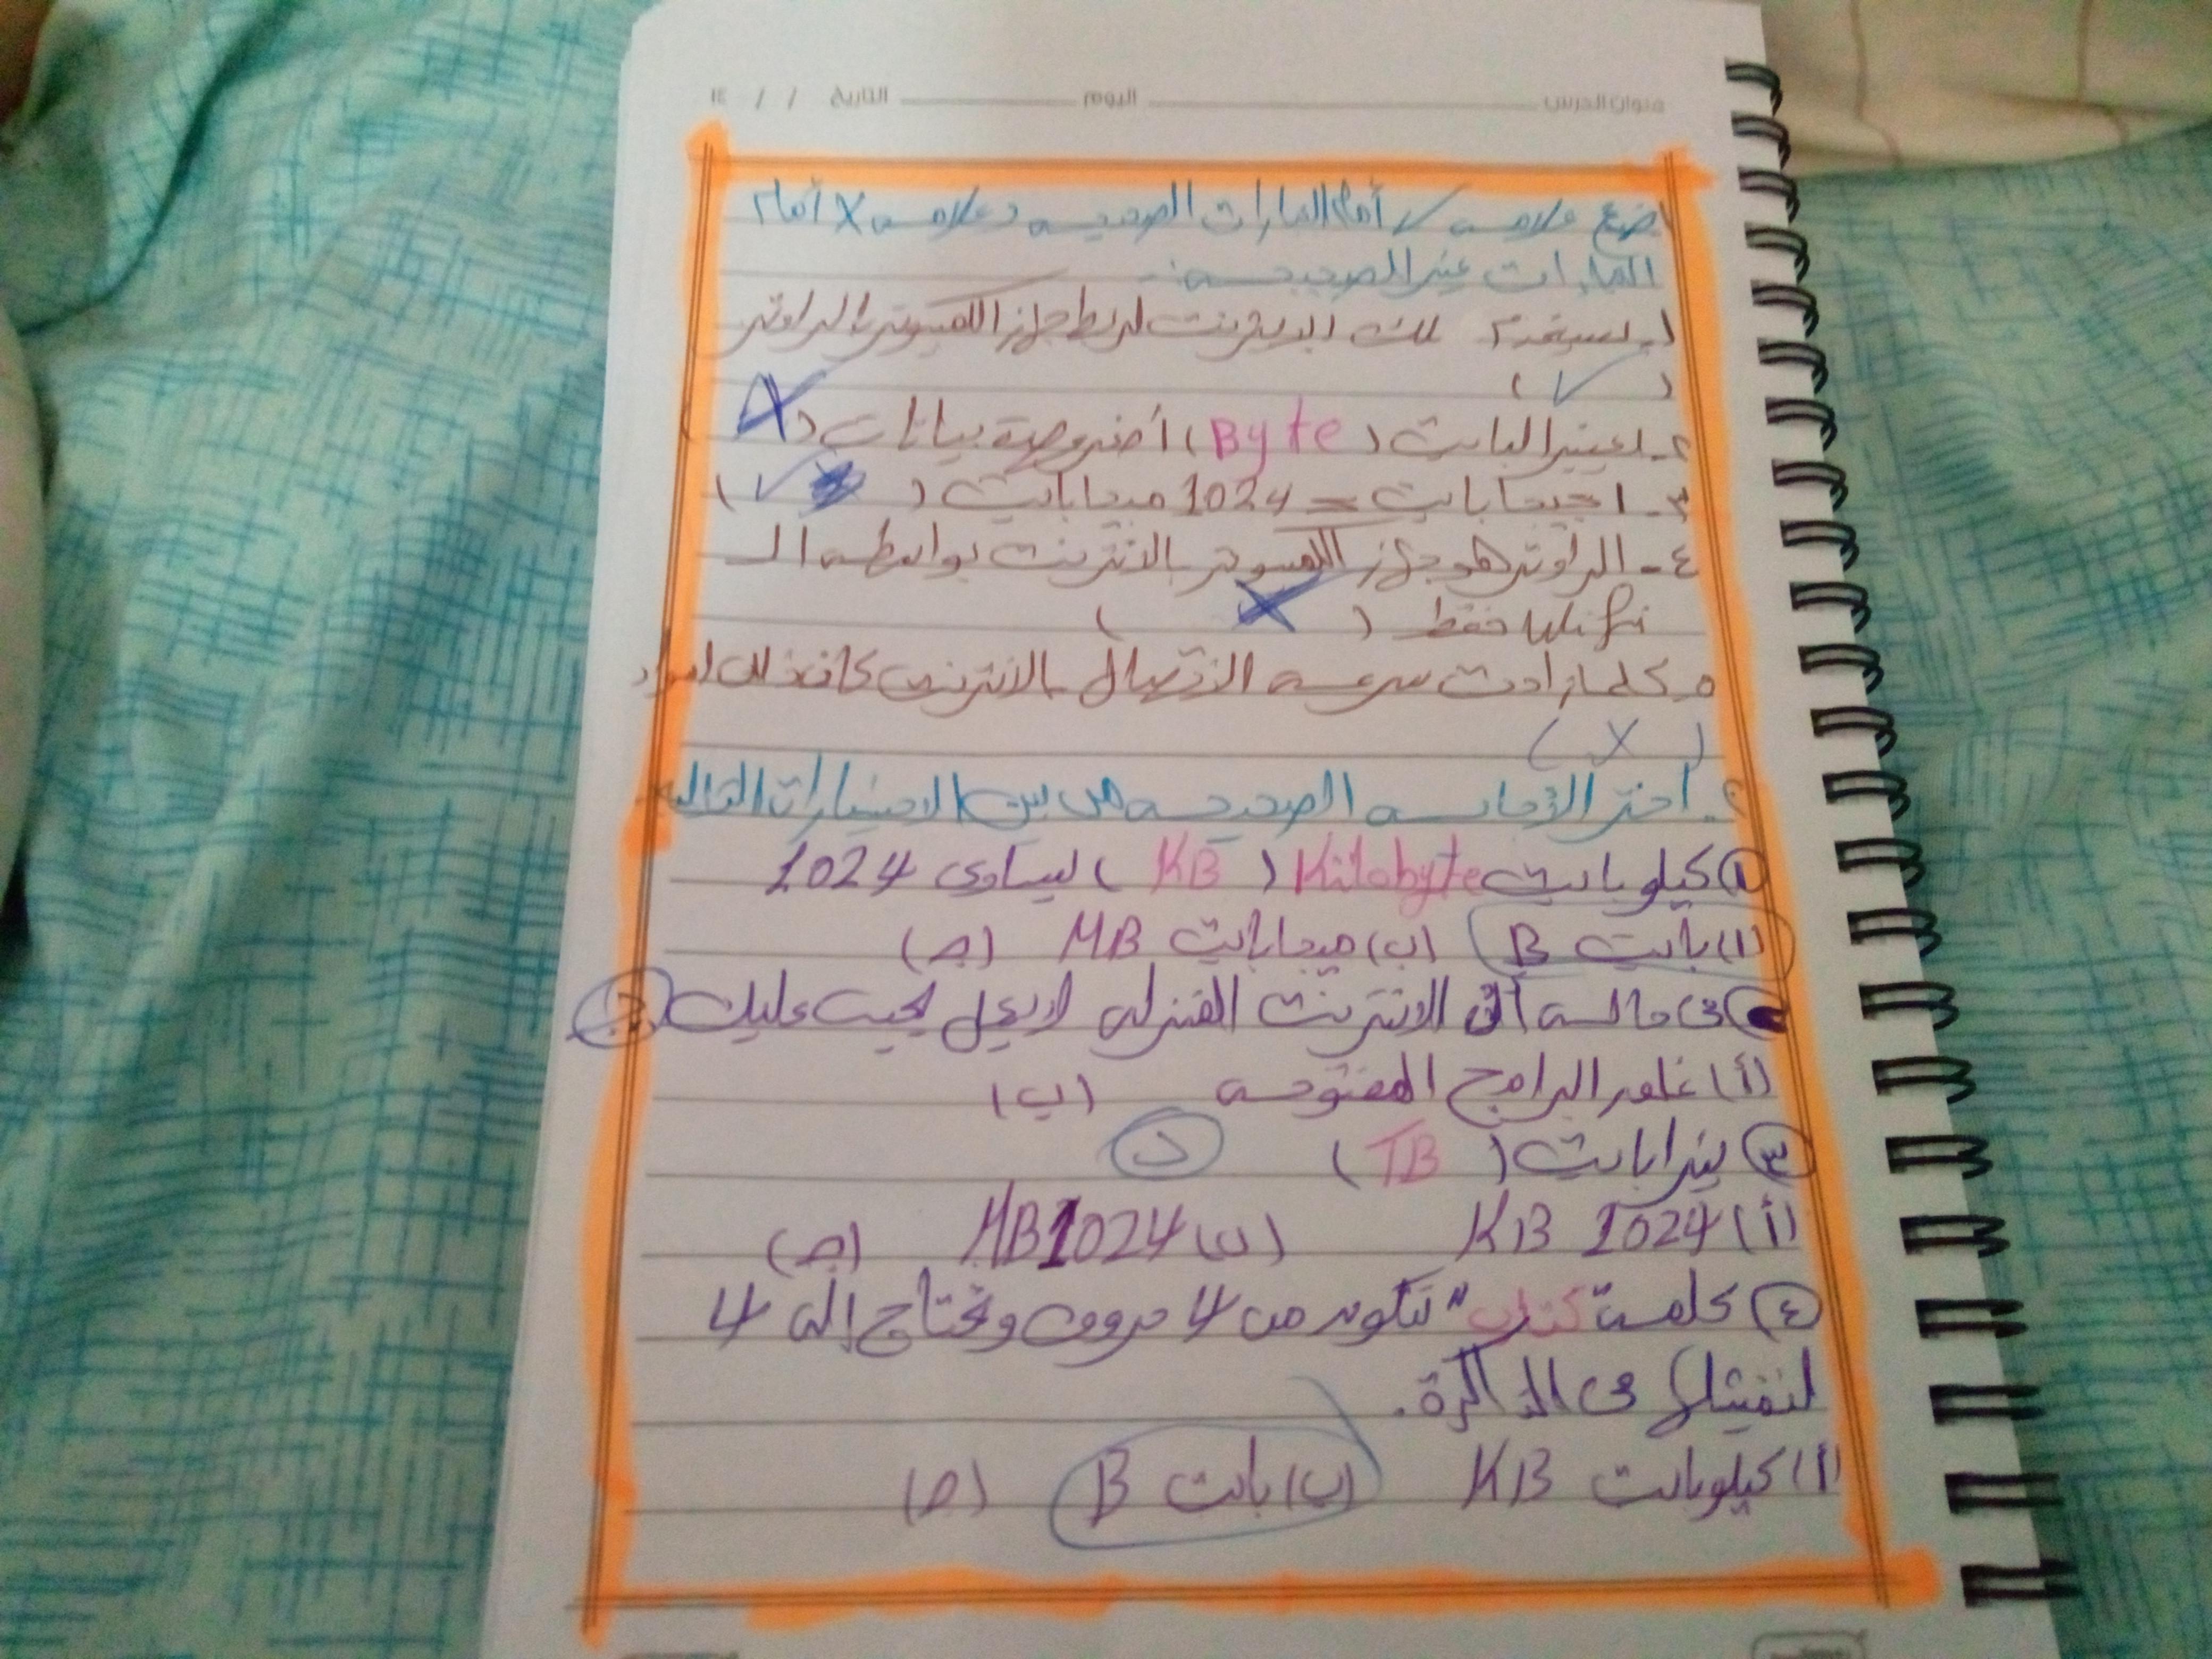 عنوان الدرس اليوم التاريخ / / ١٤
ضع علامه ✓ أمام العبارات الصحيحه وعلامه X أمام
العبارات غير الصحيحه :-
١- يستخدم سلك الانترنت لربط جهاز الكمبيوتر بالراوتر
( ✓ )
٢- البايت (Byte) أصغر وحدة بيانات (X)
٣- ١ جيجابايت = 1024 ميجابايت ( ✓ )
٤- الراوتر هو جهاز الكمبيوتر بالانترنت بواسطه الـ
فقط ( X )
٥- كلما زادت سرعه الاتصال بالانترنت كان ذلك
( X )
٢- اختر الأجابه الصحيحه من بين الاختيارات التاليه
① كيلوبايت Kilobyte ( KB ) يساوى 1024
(أ) بايت B (ب) ميجابايت MB (جـ)
فى حاله أن الانترنت المنزلى لا يعمل يجب عليك
(أ) غلق البرامج المفتوحه (ب)
③ تيرابايت ( TB ) د
(أ) 1024 KB (ب) 1024 MB (جـ)
④ كلمة "كتاب" تتكون من 4 حروف وتحتاج إلى 4
لتمثيلها فى الذاكرة.
(أ) كيلوبايت KB (ب) بايت B (جـ)